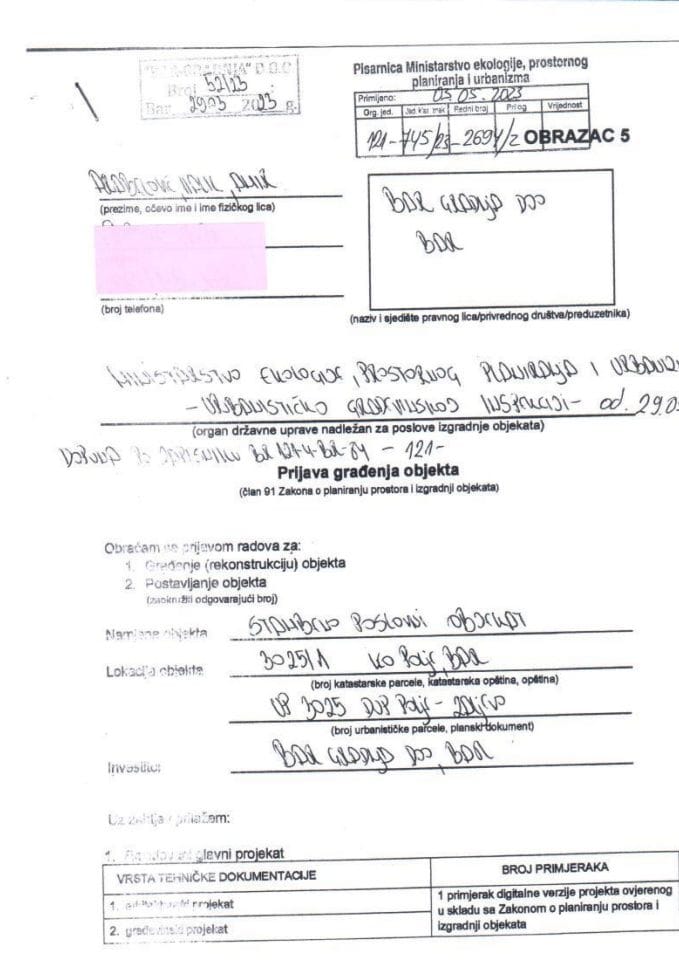 "BAR GRADNJA" D.O.O.
Broj 52/23
Bar, 29.03 2023 g.
Pisarnica Ministarstvo ekologije, prostornog
planiranja i urbanizma
Primljeno: 05.05.2023
Org. jed. Jed. klas. znak Redni broj Prilog Vrijednost
121- 745/23-2694/2 OBRAZAC 5
(prezime, očevo ime i ime fizičkog lica)
BAR GRADNJA DOO
BAR
(broj telefona)
(naziv i sjedište pravnog lica/privrednog društva/preduzetnika)
MINISTARSTVO EKOLOGIJE, PROSTORNOG PLANIRANJA I
- URBANISTIČKO GRAĐEVINSKOJ INSPEKCIJI - od. 29.0
(organ državne uprave nadležan za poslove izgradnje objekata)
DOPUNA PO ZAPISNIKU BR - 121-
Prijava građenja objekta
(član 91 Zakona o planiranju prostora i izgradnji objekata)
Obraćam se prijavom radova za:
1. Građenje (rekonstrukciju) objekta
2. Postavljanje objekta
(zaokružiti odgovarajući broj)
Namjena objekta STAMBENO POSLOVNI OBJEKAT
Lokacija objekta 3025/1 KO Polje, BAR
(broj katastarske parcele, katastarska opština, opština)
UP 3025 DUP Polje -
(broj urbanističke parcele, planski dokument)
Investitor: BAR GRADNJA DOO, BAR
Uz prilažem:
1. glavni projekat
VRSTA TEHNIČKE DOKUMENTACIJE BROJ PRIMJERAKA
1. projekat
2. građevinski projekat
1 primjerak digitalne verzije projekta ovjerenog
u skladu sa Zakonom o planiranju prostora i
izgradnji objekata